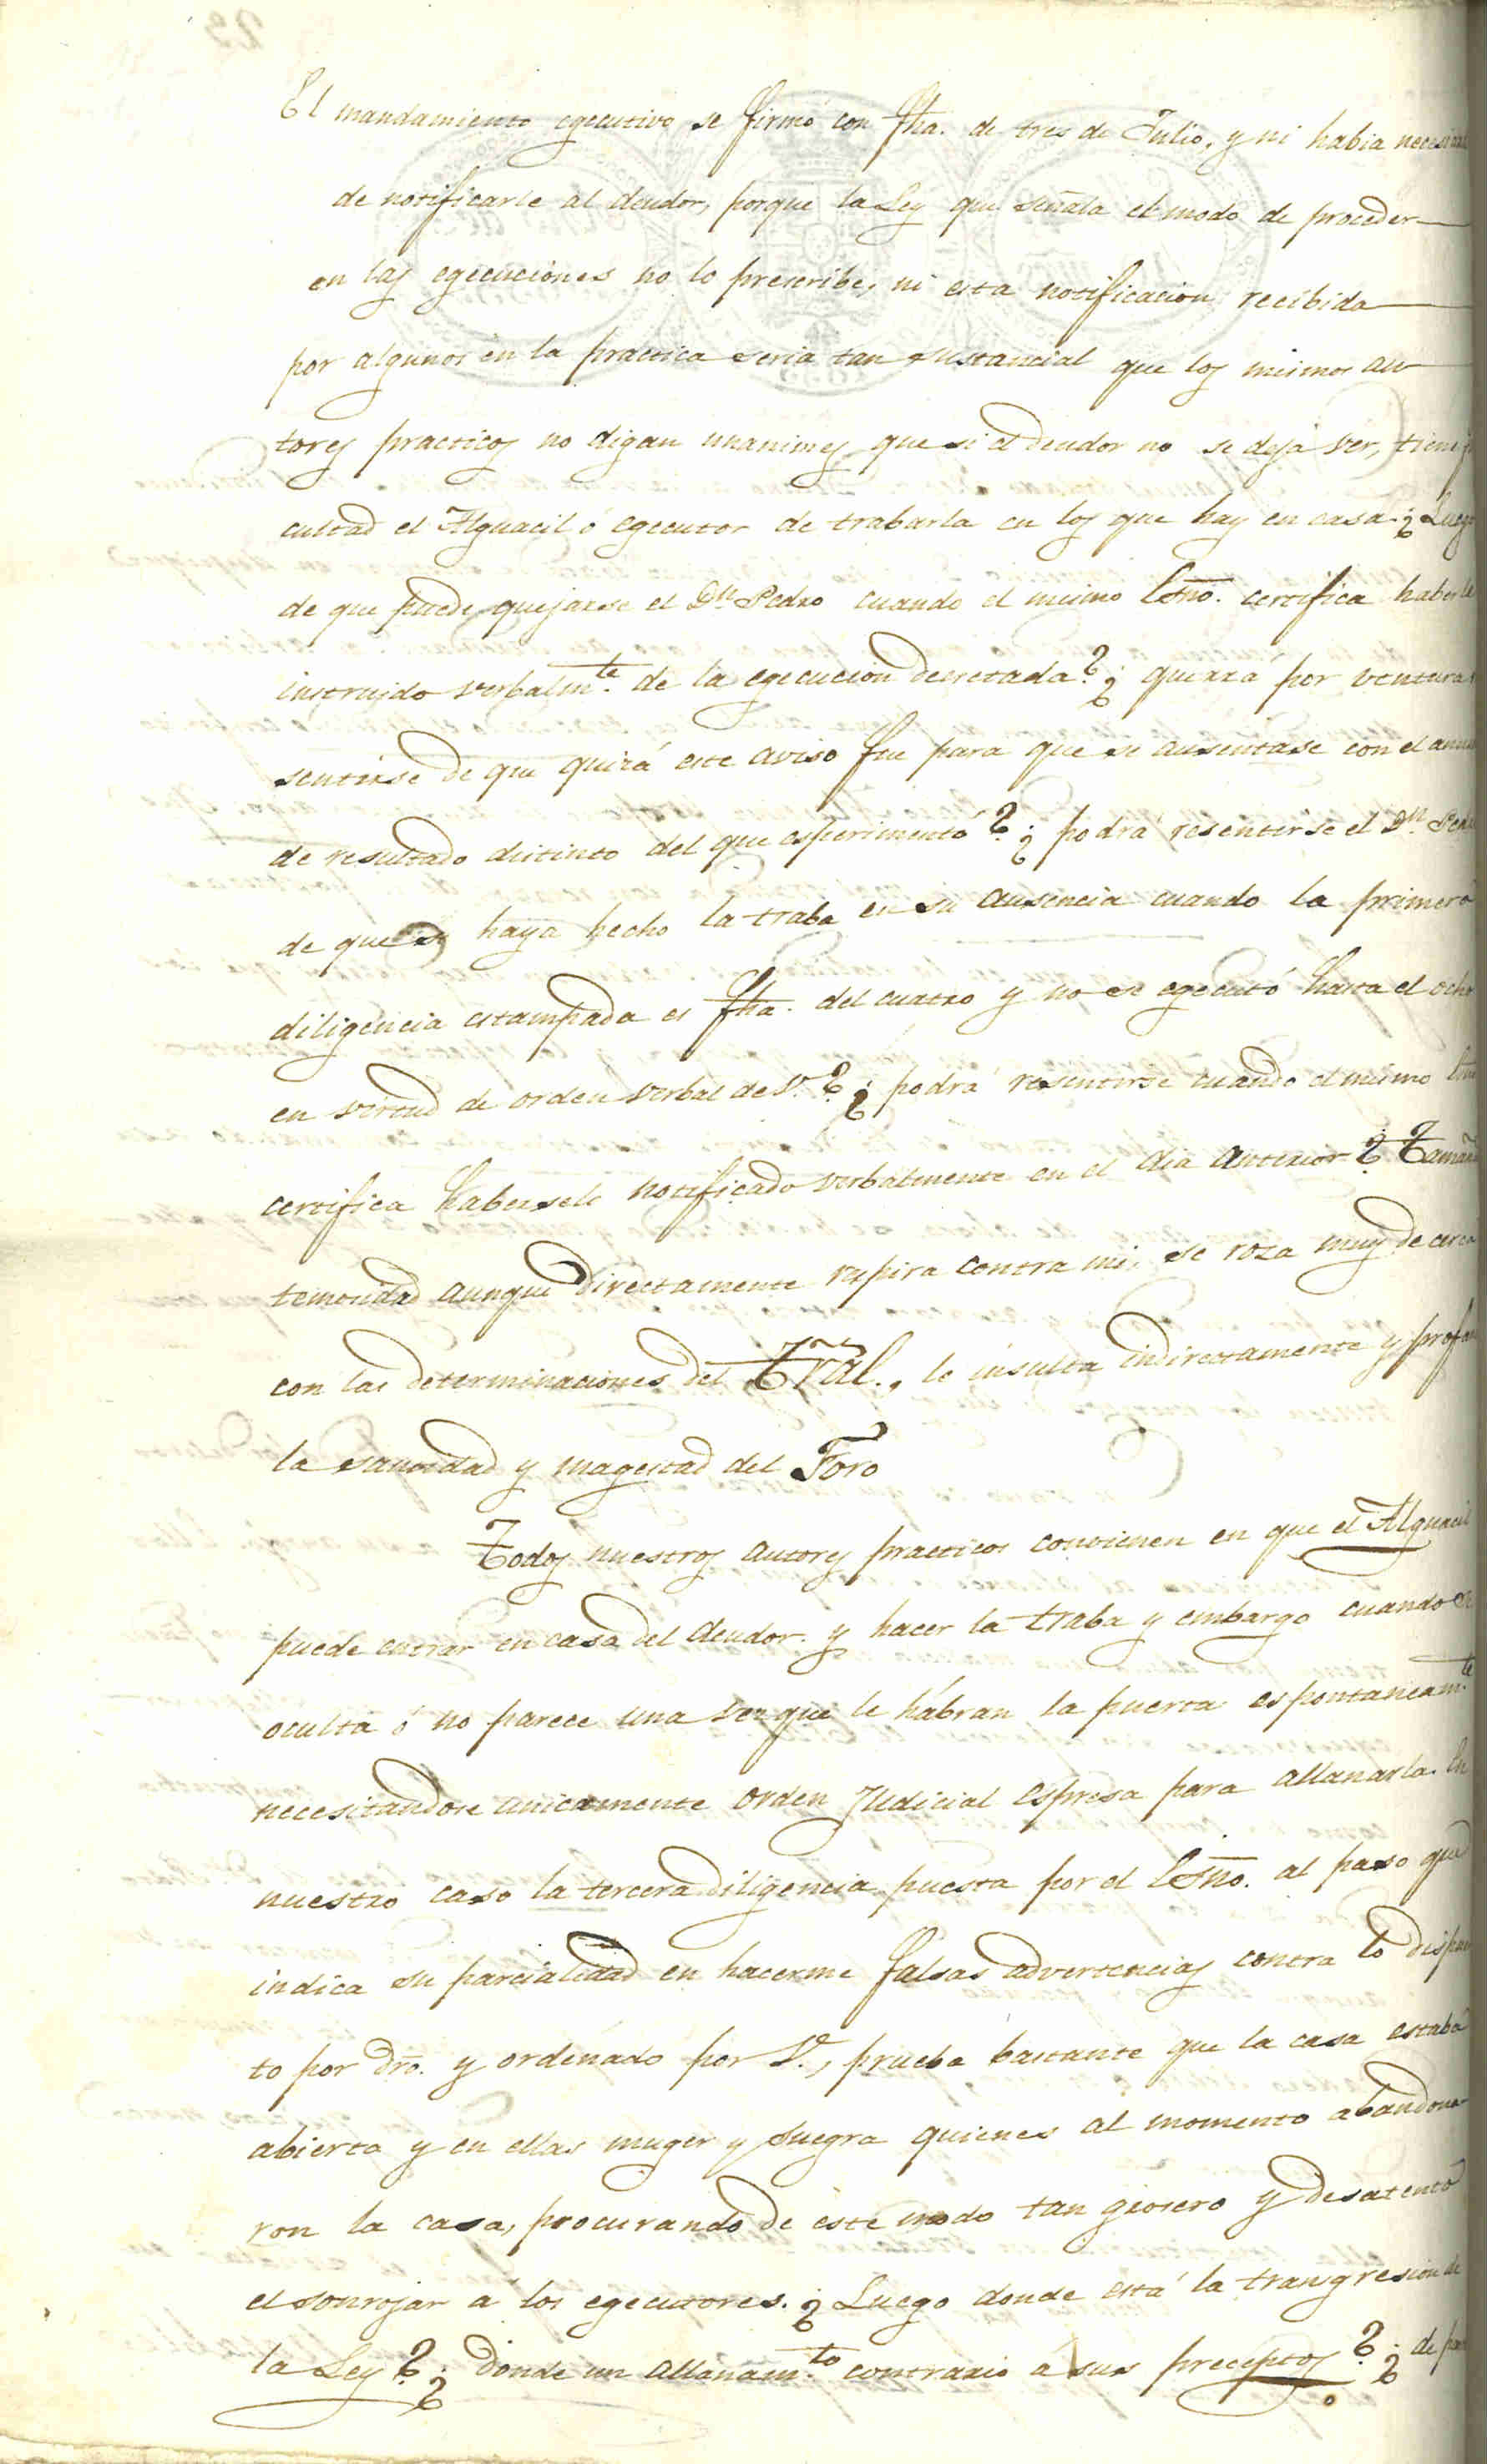 El mandamiento egecutivo se firmó con fha. de tres de Julio, y ni habia necesidad
de notificarle al deudor, porque la Ley que señala el modo de proceder
en las egecuciones no lo prescribe, ni esta notificacion recibida
por algunos en la practica seria tan sustancial que los mismos au
tores practicos no digan unanimes que si el deudor no se deja ver, tiene fa
cultad el Alguacil ó egecutor de trabarla en los que hay en casa. ¿Luego
de que puede quejarse el Dn. Pedro cuando el mismo Esno. certifica haberle
instruido verbalmte. de la egecucion decretada? ¿querrá por ventura
sentirse de que quizá este aviso fue para que se ausentase con el
de resultado distinto del que esperimentó? ¿podrá resentirse el Dn. Pedro
de que se haya hecho la traba en su ausencia cuando la primera
diligencia estampada es fha. del cuatro y no se egecutó hasta el ocho
en virtud de orden verbal de V.? ¿podrá resentirse cuando el mismo Esno
certifica haberselo notificado verbalmente en el dia anterior? Tamaña
temeridad aunque directamente respira contra mi, se roza muy de cerca
con las determinaciones del Tral., le insulta indirectamente y profana
la santidad y magestad del Foro
Todos nuestros autores practicos convienen en que el Alguacil
puede entrar en casa del deudor y hacer la traba y embargo cuando se
oculta ó no parece una vez que le habran la puerta espontaneamte.
necesitandose unicamente orden Judicial espresa para allanarla. En
nuestro caso la tercera diligencia puesta por el Esno. al paso que
indica su parcialidad en hacerme falsas advertencias contra lo dispues
to por dro. y ordenado por V., prueba bastante que la casa estaba
abierta y en ellas muger y suegra quienes al momento abandona
ron la casa, procurando de este modo tan grosero y desatento
el sonrojar á los egecutores. ¿Luego donde está la transgresion de
la Ley? ¿Donde un allanamto. contrario á sus preceptos? ¿de